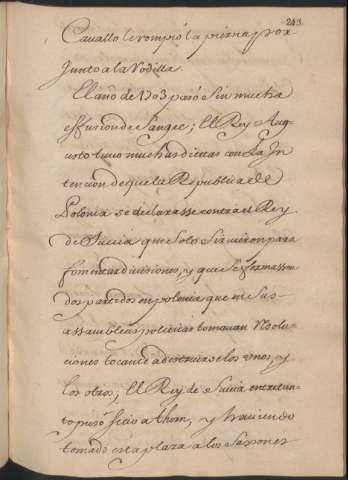 243.
Cauallo le rompió la pierna por
Junto a la Rodilla.
El año de 1703 pasó sin mucha
effusion de Sangre; El Rey Aug-
usto tuuo muchas dietas con La In
tencion de que la Republica de
Polonia se declarasse contra el Rey
de Suecia que solo siruieron para
fomentar diuisiones, y que se formassen
dos partidos en polonia que en sus
assambleas politicas tomauan Resolu-
ciones tocante a destruirse los vnos, y
los otros; El Rey de Suecia entretan-
to pusó sitio a thorn, y hauiendo
tomado esta plaza a los Saxones